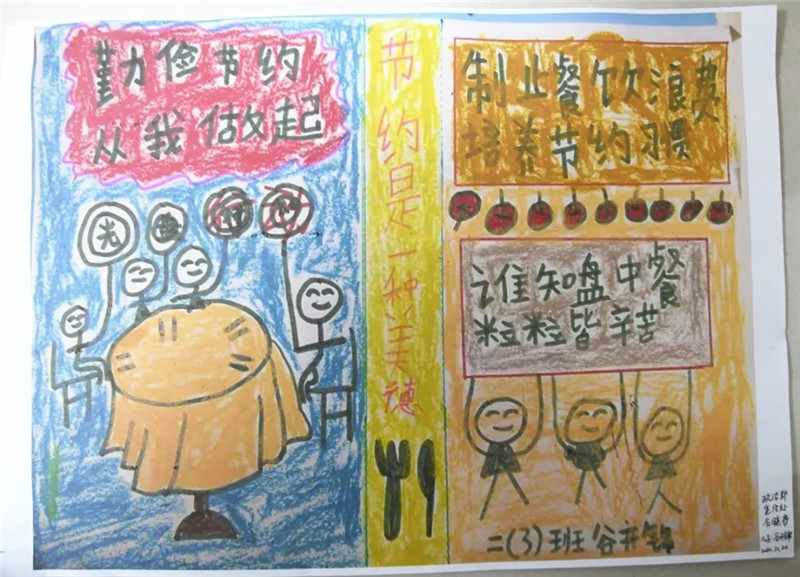 勤俭节约
从我做起
光
节约是一种美德
制止餐饮浪费
培养节约习惯
谁知盘中餐
粒粒皆辛苦
二(3)班谷亦锦